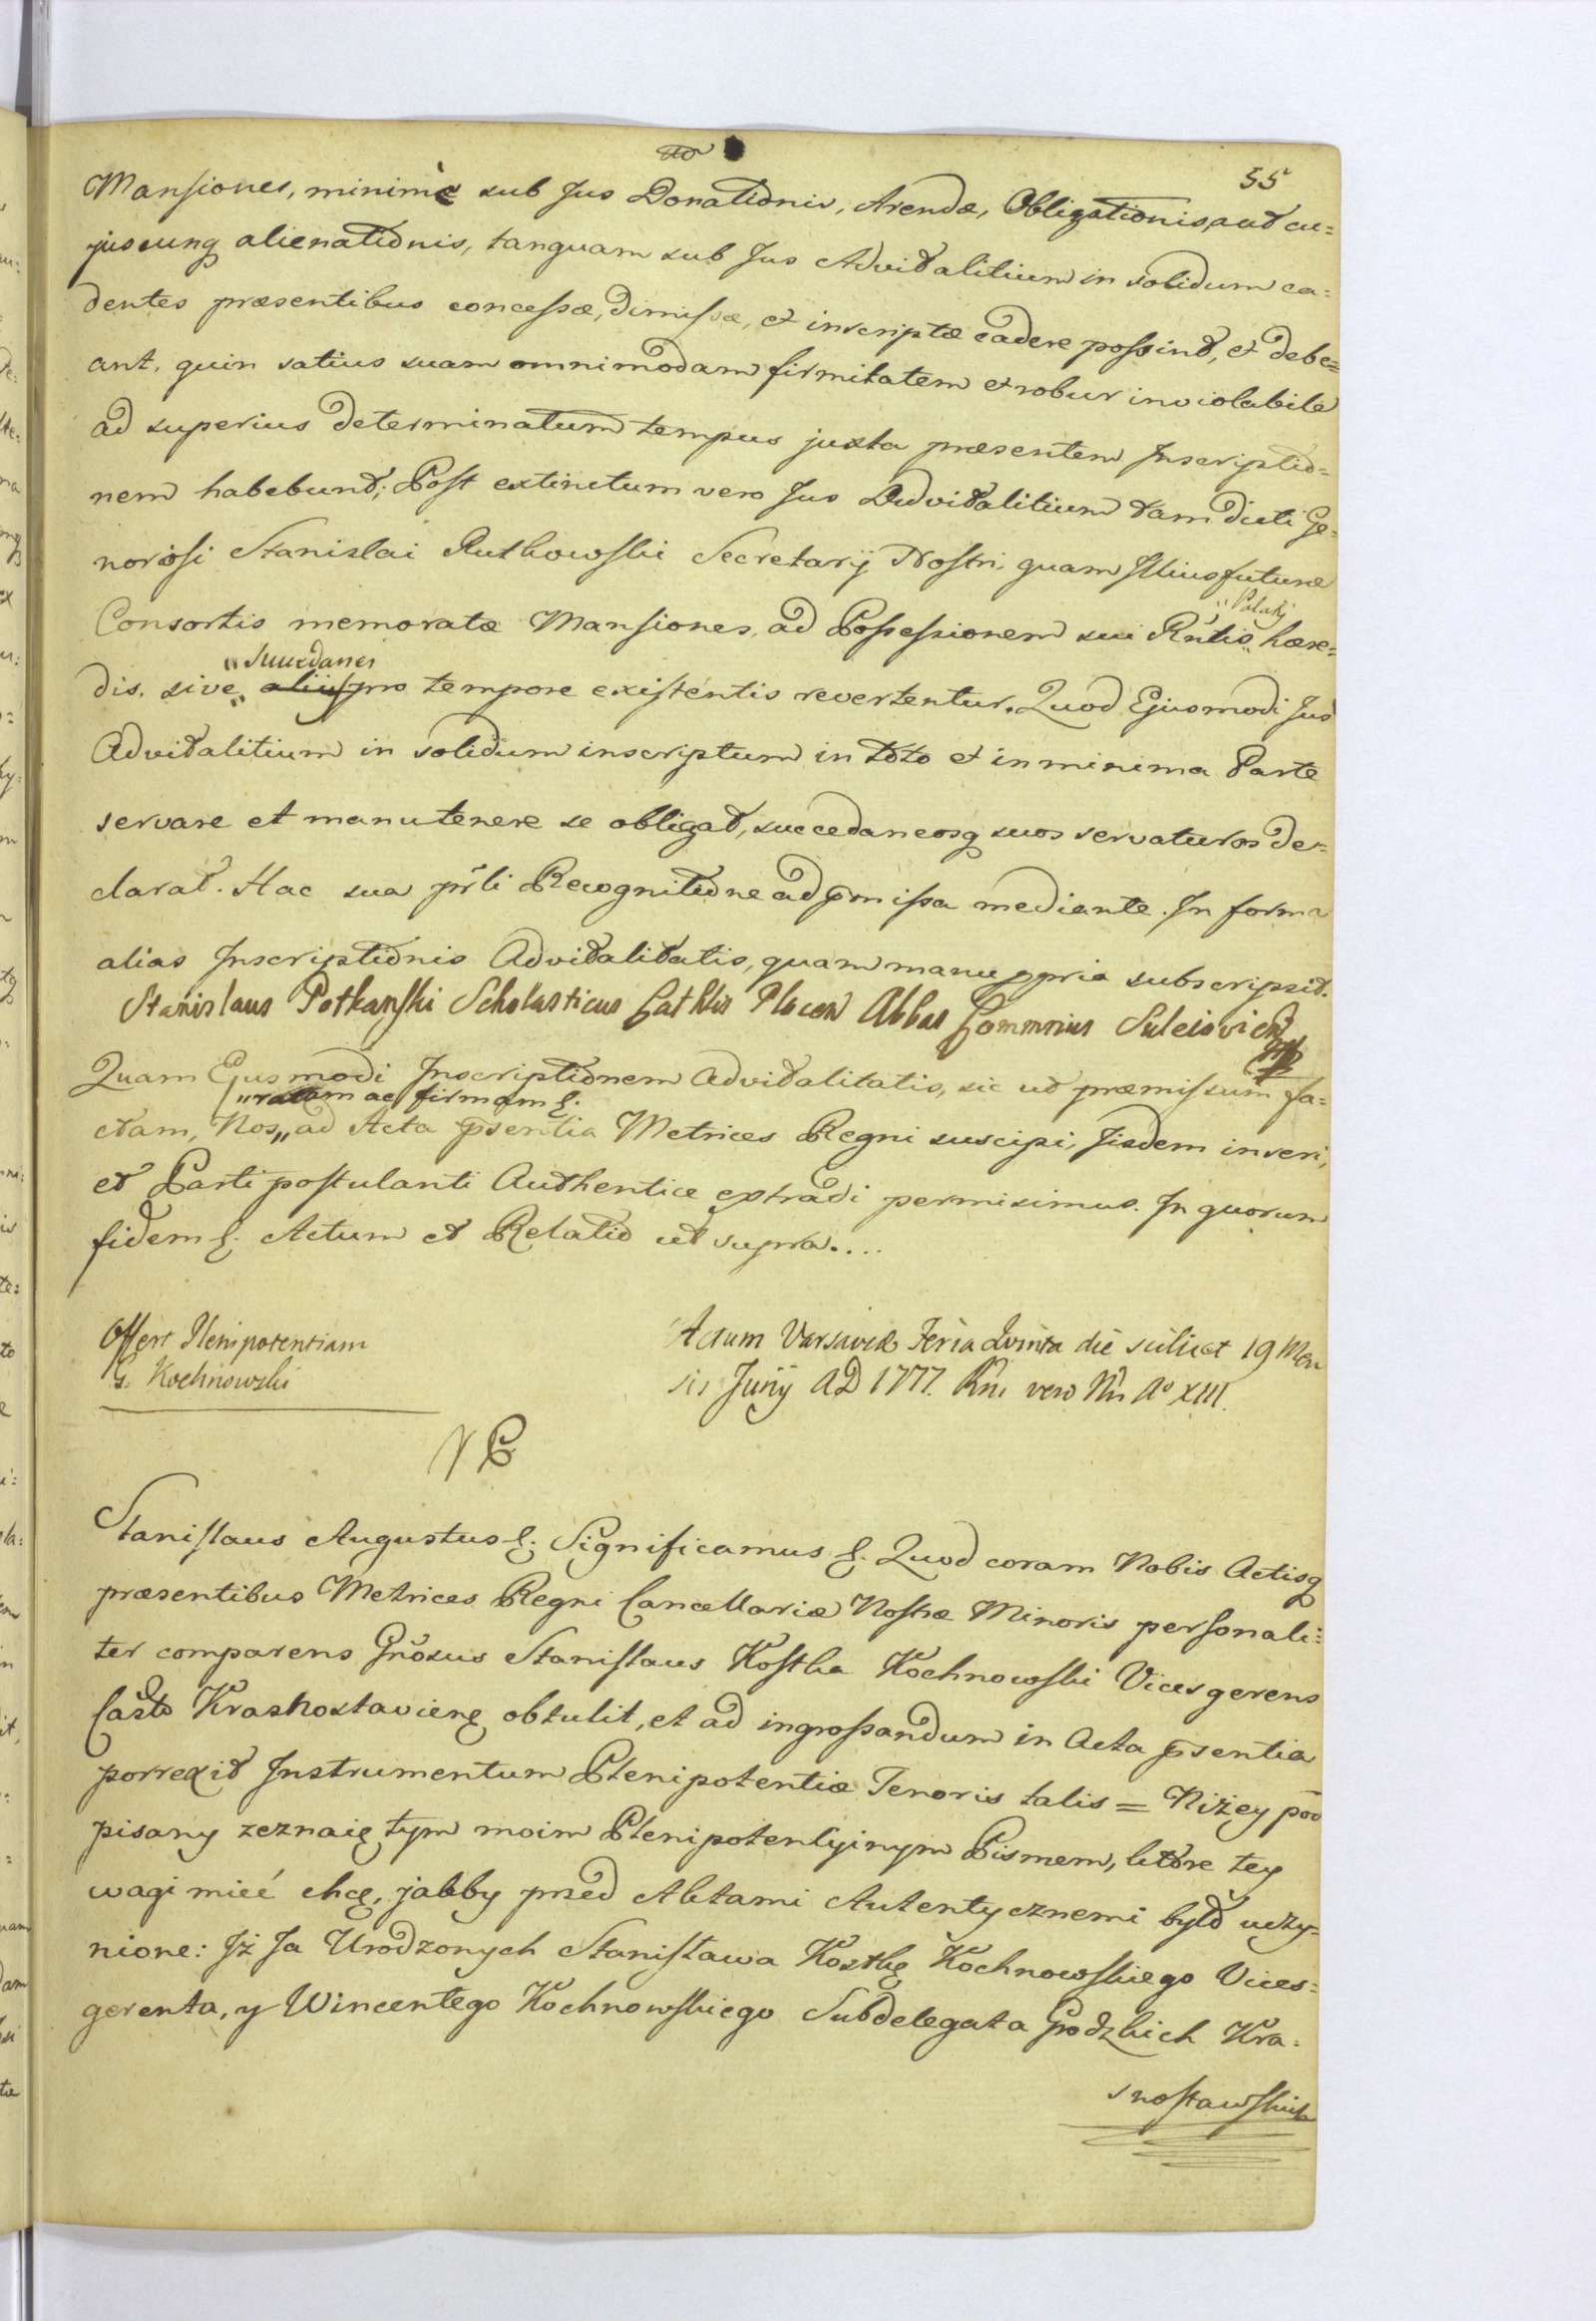 55
Mansiones, minimè sub Jus Donationis, Arendæ, Obligationis, aut cu=
juscunq alienationis, tanquam sub Jus Advitalitium in solidum ca=
dentes præsentibus concessæ, dimissæ, et inscriptæ cadere possint, et debe=
ant, quin satius suam omnimodam firmitatem et robur inviolabile
ad superius determinatum tempus juxta præsentem Inscriptio=
nem habebunt; Post extinctum vero Jus Advitalitium tam dicti Ge=
norosi Stanislai Rutkowski Secretarij Nostri, quam Illius futuræ
Consortis memoratæ Mansiones, ad Possessionem sui Rntis „ hære=
„ Palatij
dis, sive „ alius pro tempore existentis revertentur. Quod Ejusmodi Jus
„ Succedanei
Advitalitium in solidum inscriptum in toto et in minima Parte
servare et manutenere se obligat, succedaneosq suos servaturos de=
clarat. Hac sua prsti Recognitione ad pmissa mediante. In forma
alias Inscriptionis Advitalitatis, quam manu ppria subscripsit.
Stanislaus Potkanski Scholasticus Cathlis Plocen Abbas Commrius Suleiovien
Quam Ejusmodi Inscriptionem Advitalitatis, sic ut præmissum fa=
„ ratam ac firmam &.
ctam, Nos „ ad Acta psentia Metrices Regni suscipi, Iisdem inseri,
et Parti postulanti Authentice extradi permisimus. In quorum
fidem &. Actum et Relatio ut supra....
Offert Plenipotentiam
G. Kochnowski
Actum Varsaviæ Feria Qvinta die scilicet 19 Men
sis Junij AD 1777. Rni vero Nri Aº XIII.
Stanislaus Augustus &. Significamus &. Quod coram Nobis Actisq
præsentibus Metrices Regni Cancellariæ Nostræ Minoris personali=
ter comparens Gnosus Stanislaus Kostka Kochnowski Vicesgerens
Castr Krasnostavien obtulit, et ad ingrossandum in Acta psentia
porrexit Instrumentum Plenipotentiæ Tenoris talis = Niżey pod
pisany zeznaię tym moim Plenipotencyinym Pismem, które tey
wagi mieć chcę, jakby przed Aktami Autentycznemi było uczy=
nione: Iż Ja Urodzonych Stanisława Kostkę Kochnowskiego Vices=
gerenta, y Wincentego Kochnowskiego Subdelegata Grodzkich Kra=
snostawskich